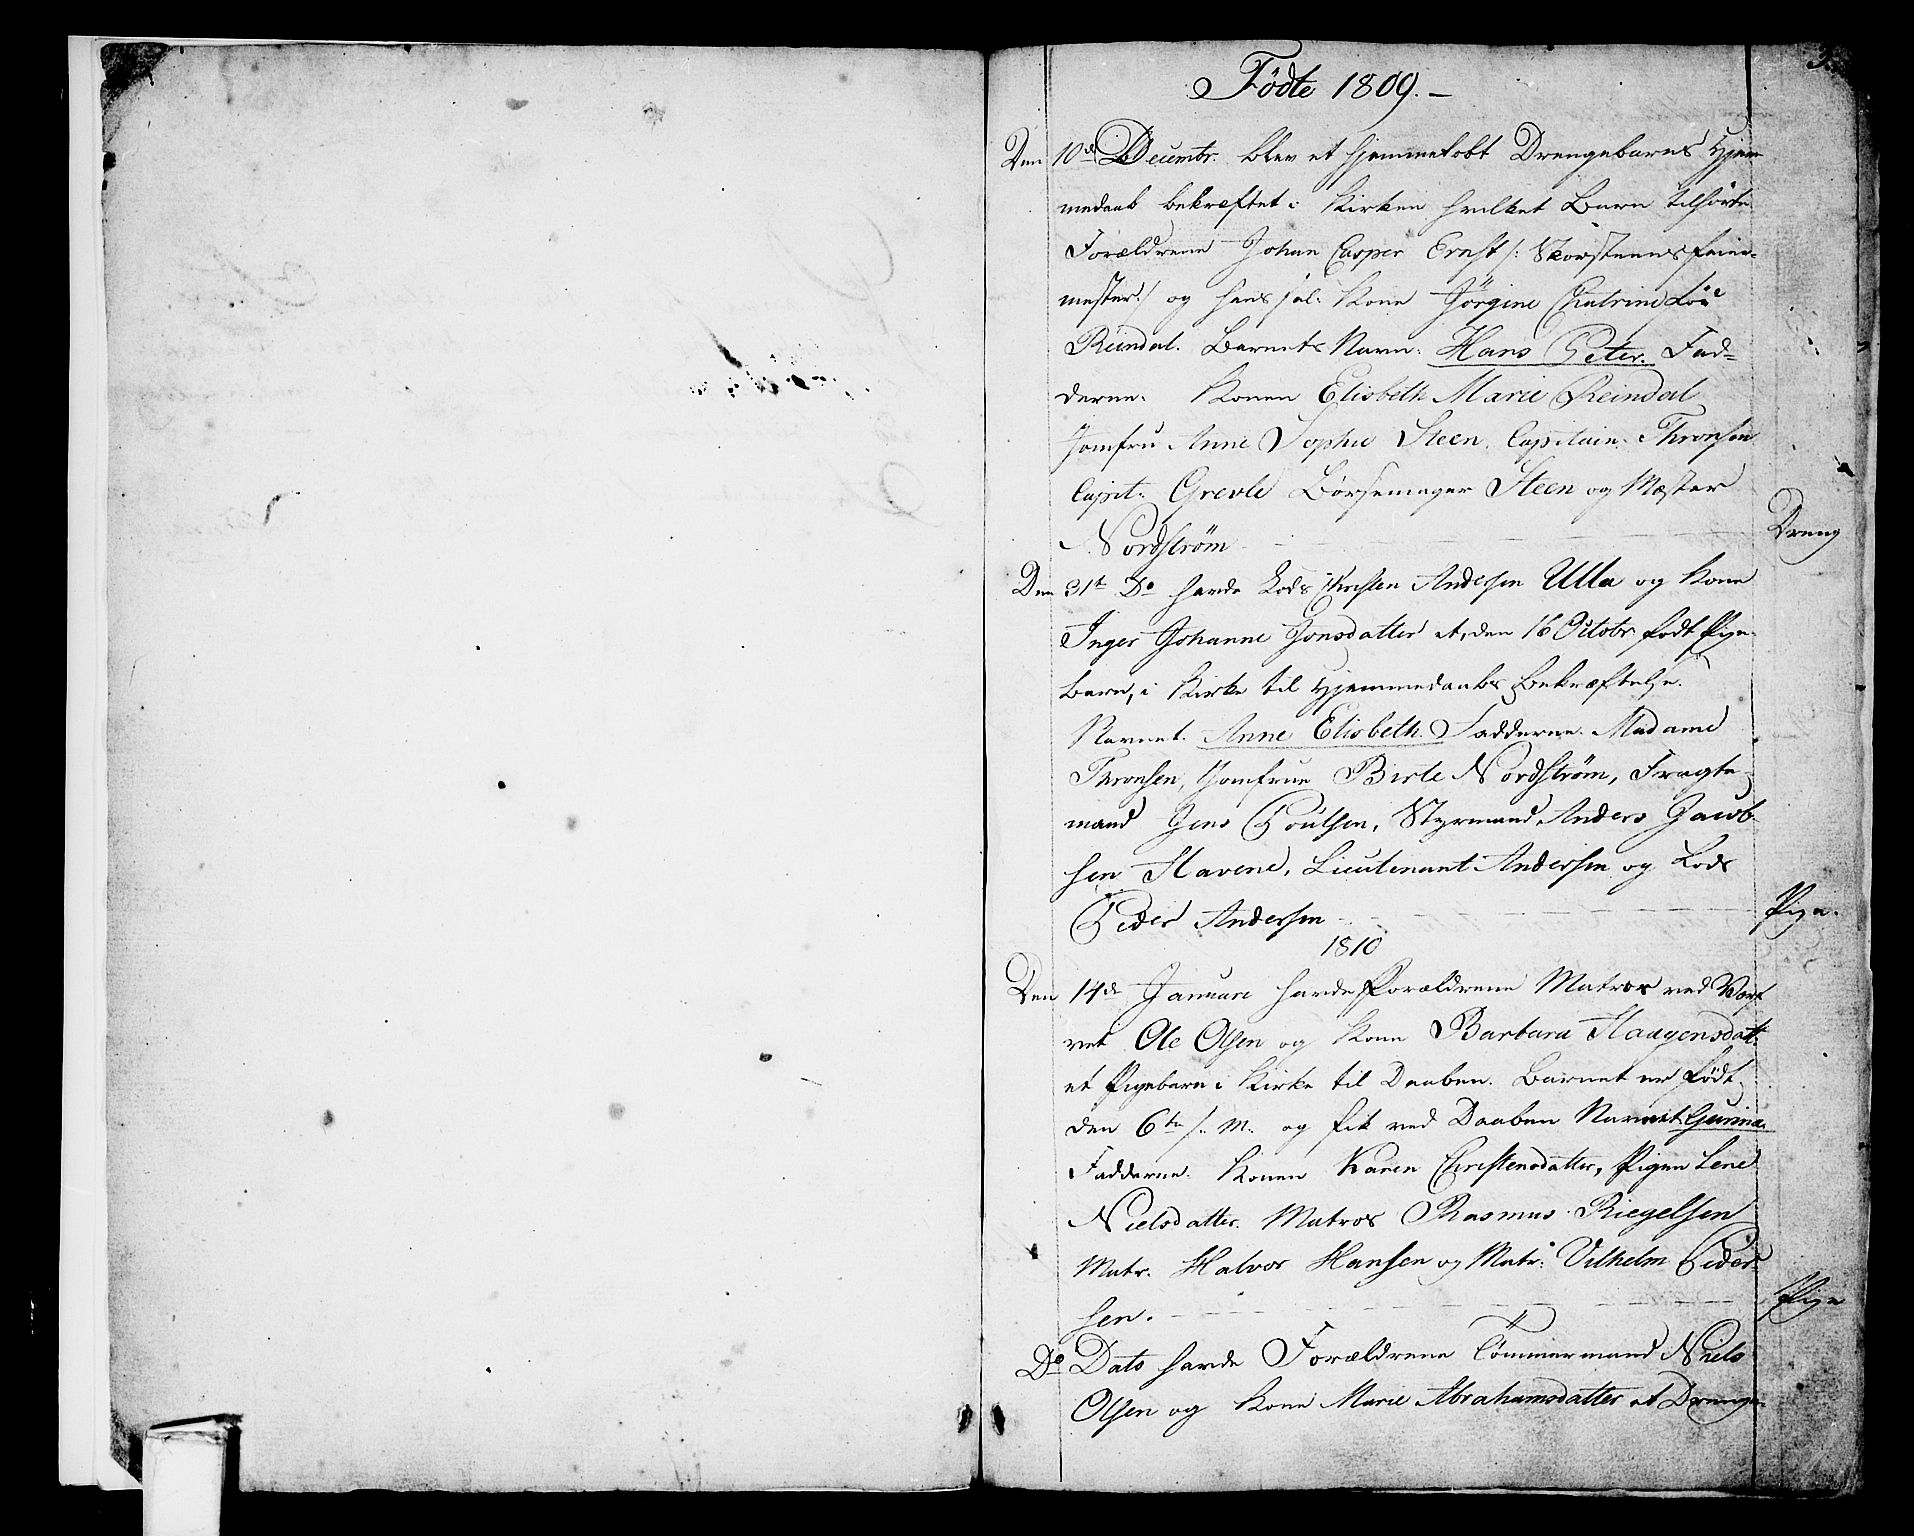 Fødte 1809.
Den 10de Decembr. blev et hjemmefødt Drengebarns Hjem-
medaab bekræftet i Kirken hvilket Barn tilhørte
Forældrene Johan Casper Ernst /: Skorsteensfeier-
mester :/ og hans sal. Kone Jörgine Chatrine
Reindal. Barnets Navn: Hans Peter. Fad-
derne. Konen Elisbeth Marie Reindal
Jomfru Anne Sophie Steen. Capitain Thronsen
Capit. Grevle Börsemager Steen og Mester
Nordström
Dreng
Den 31te Do havde Lods Christen Andersen Ulla og Kone
Inger Johanne Jonsdatter et, den 16 Octobr. födt Pige-
barn, i Kirke til Hjemmedaabs Bekræftelse.
Navnet. Anne Elisbeth. Fadderne. Madame
Thronsen, Jomfrue Birte Nordström, Fragte-
mand Jens Poulsen, Styrmand Anders Jacob-
sen Havene, Lieutenant Andersen og Lods
Peder Andersen
Pige.
1810
Den 14de Januari havde Forældrene Matros ved Værf-
vet Ole Olsen og Kone Barbara Haagensdatt.
et Pigebarn i Kirke til Daaben. Barnet er födt
den 6te s. M. og fik ved Daaben Navnet Gunnia.
Fadderne. Konen Karen Christensdatter, Pigen Lene
Nielsdatter. Matros Rasmus Riegelsen
Matr. Halvor Hansen og Matr. Vilhelm Peder-
sen.
Pige
Do Dato havde Forældrene Tömmermand Niels
Olsen og Kone Marie Abrahamsdatter et Drenge-